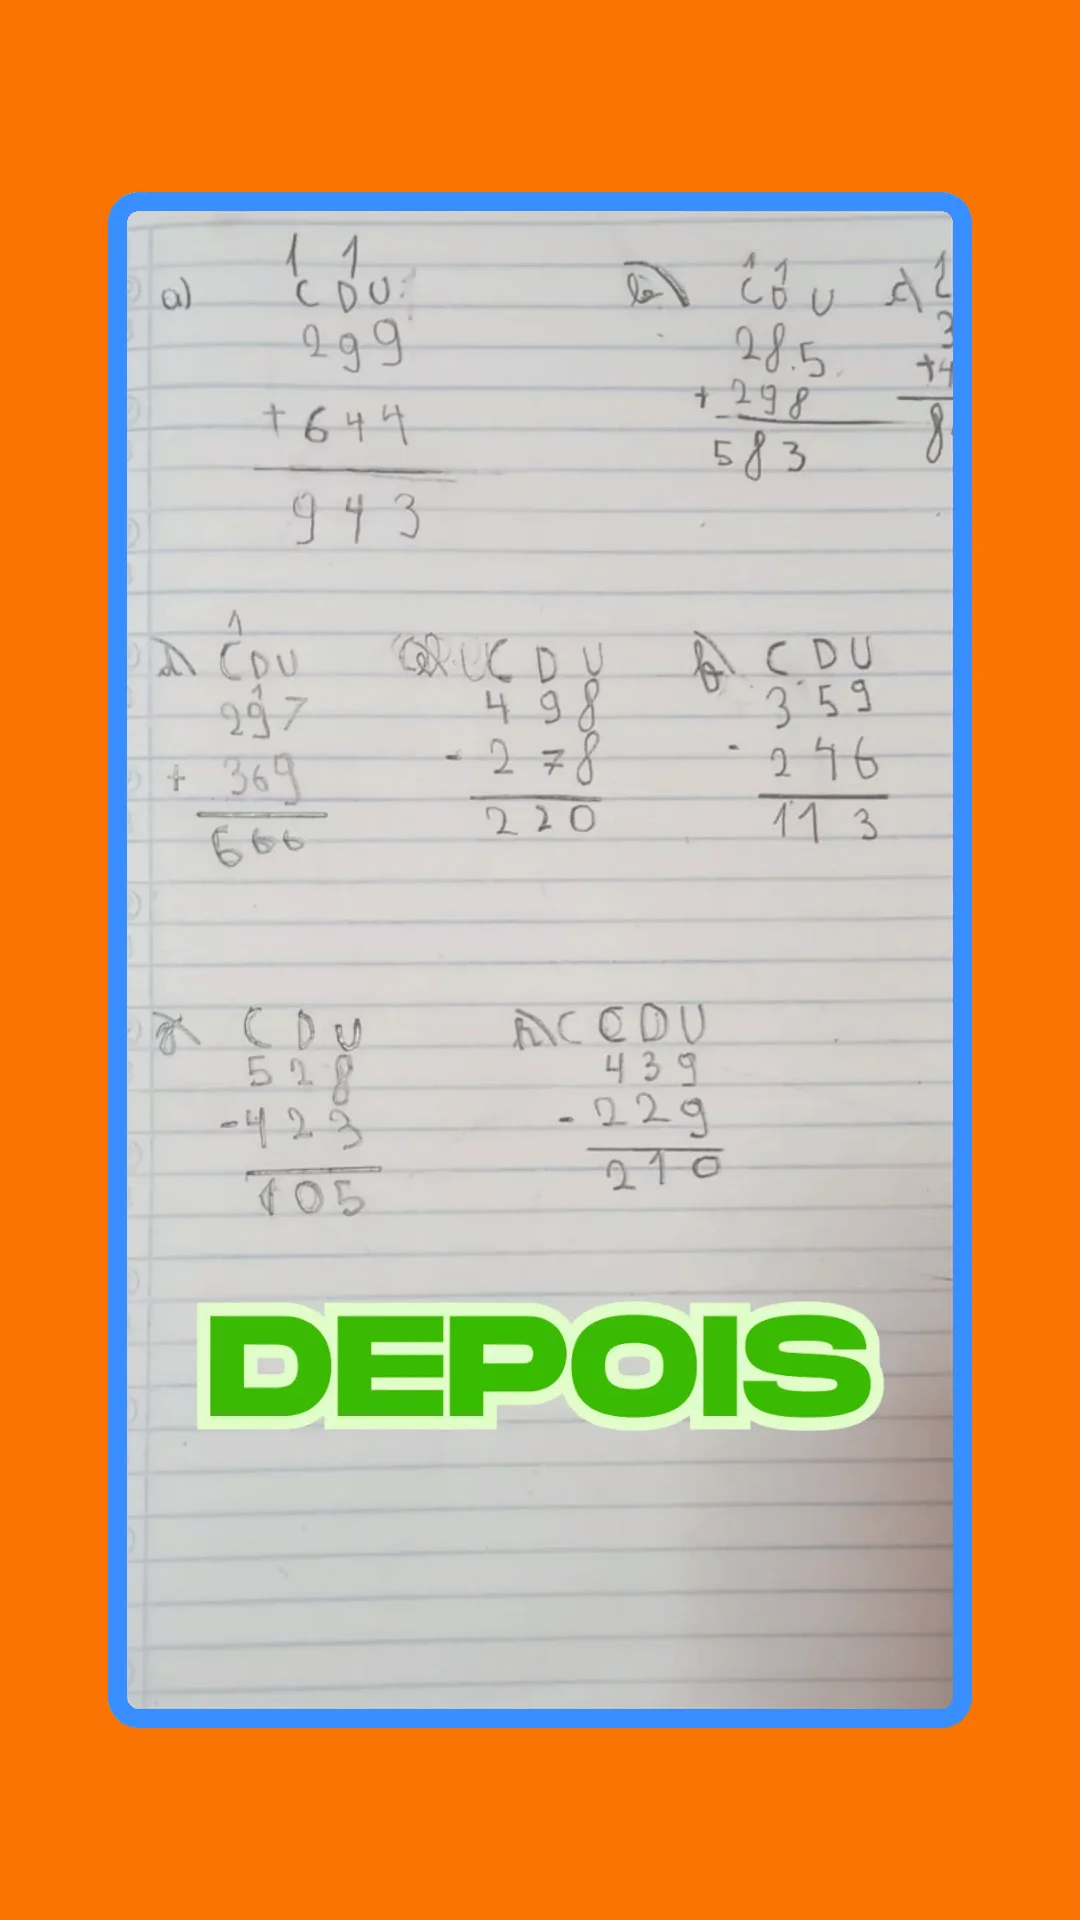 1 1
a) C D U
299
+ 644
943
b) 1 1
C D U
28.5
+ 298
583
c) 1
3
+4
8
d) 1
C D U
1
297
+ 369
666
C D U
498
- 278
220
f) C D U
359
- 246
113
g) C D U
528
- 423
105
h) C C D U
439
- 229
210
DEPOIS